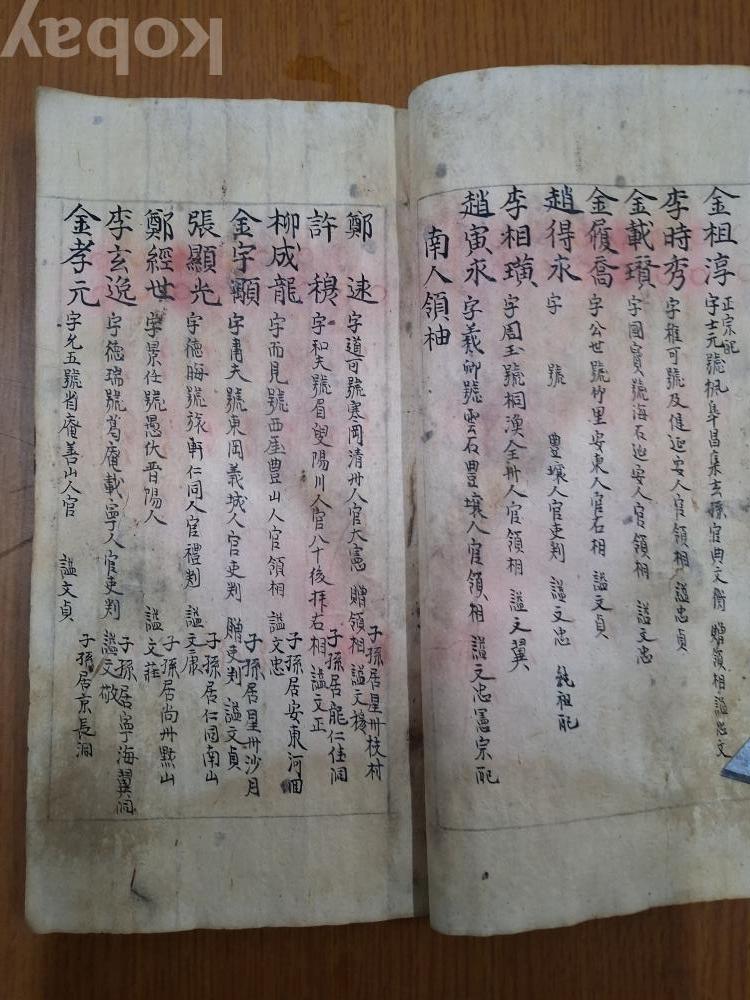 金祖淳 正宗配 字士元號楓皐昌集玄孫官典文衡 贈領相謚忠文
李時秀 字稚可號及健延安人官領相謚忠貞
金載瓚 字國寶號海石延安人官領相 謚文忠
金履喬 字公世號竹里安東人官右相 謚文貞
趙得永 字 號 豊壤人官吏判 謚文忠 純祖配
李相璜 字周玉號桐漁全州人官領相 謚文翼
趙寅永 字羲卿號雲石豊壤人官領相 謚文忠憲宗配
南人領袖
鄭逑 字道可號寒岡淸州人官大憲 贈領相謚文穆 子孫居星州枝村
許穆 字和夫號眉叟陽川人官八十後拜右相謚文正 子孫居龍仁佳洞
柳成龍 字而見號西厓豊山人官領相 謚文忠 子孫居安東河回
金宇顒 字肅夫號東岡義城人官吏判 贈吏判謚文貞 子孫居星州沙月
張顯光 字德晦號旅軒仁同人官禮判 謚文康 子孫居仁同南山
鄭經世 字景任號愚伏晋陽人 謚文莊 子孫居尙州黙山
李玄逸 字德瑞號葛庵載寧人官吏判 謚文敬 子孫居寧海翼洞
金孝元 字允五號省庵善山人官 謚文貞 子孫居京長洞
kobay